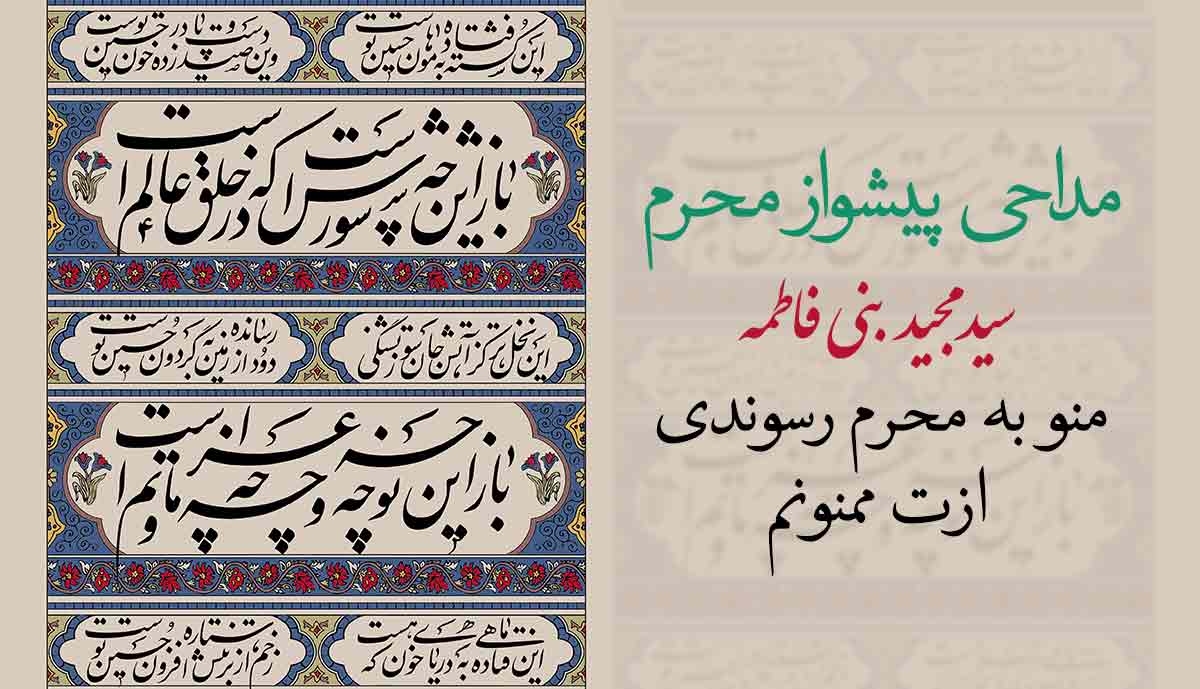 مداحی پیشواز محرم
سید مجید بنی فاطمه
منو به محرم رسوندی
ازت ممنونم
این کشته فتاده به هامون حسین توست
وین صید دست و پا زده در خون حسین توست
باز این چه شورش است که در خلق عالم است
این نخل تر کز آتش جانسوز تشنگی
دود از زمین رسانده به گردون حسین توست
باز این چه نوحه و چه عزا و چه ماتم است
این ماهی فتاده به دریای خون که هست
زخم از ستاره بر تنش افزون حسین توست